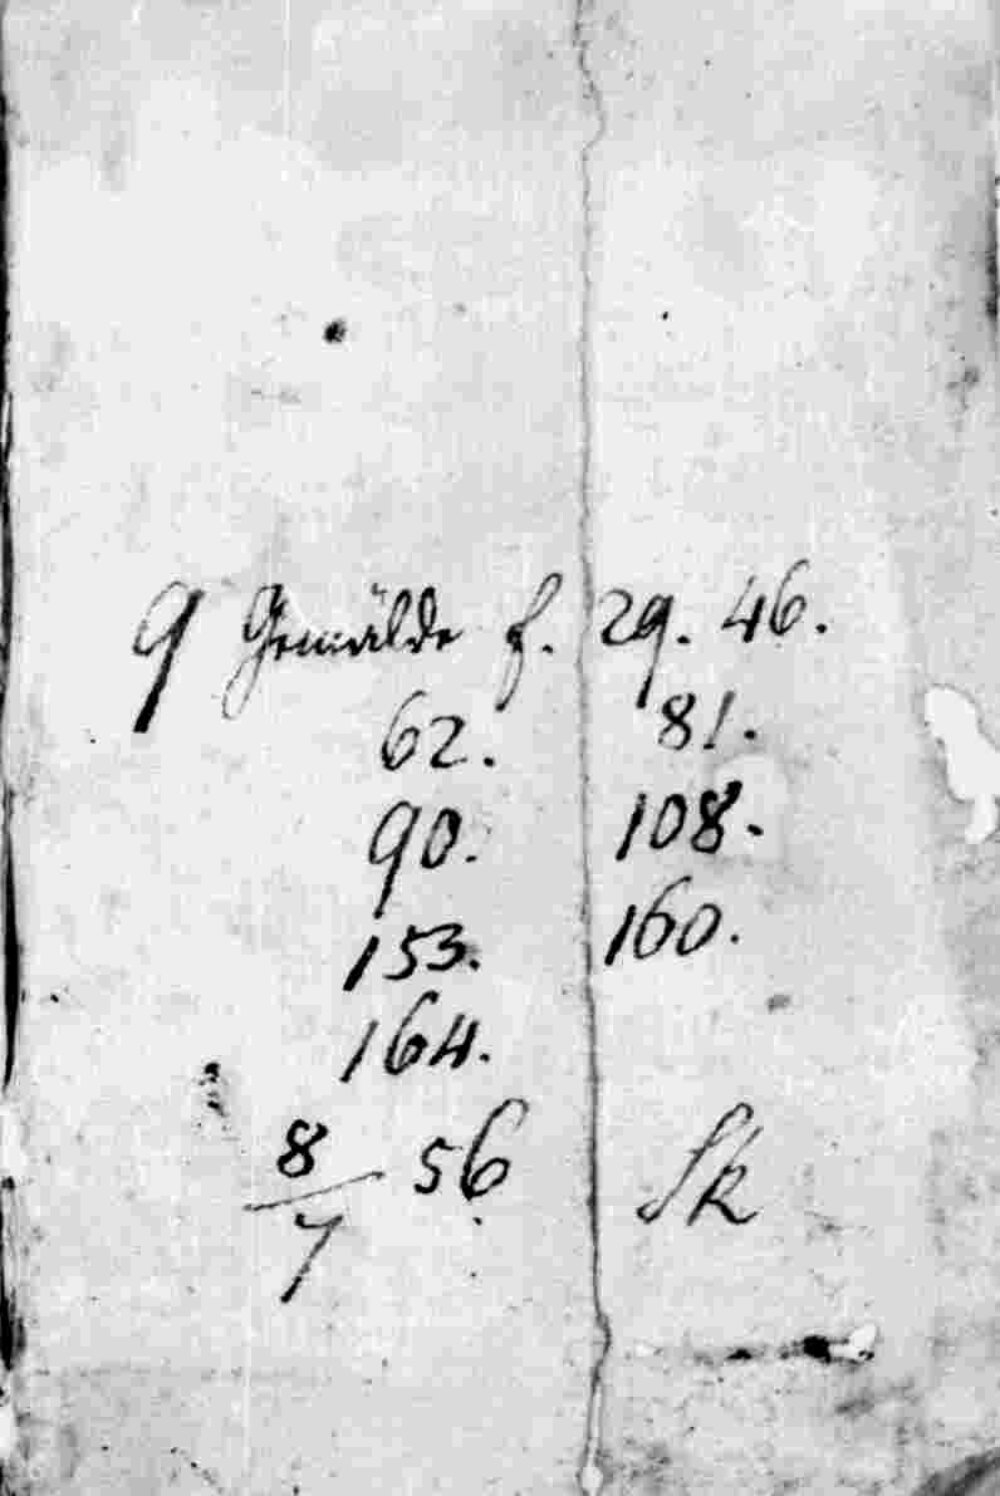 9 Gemälde f. 29. 46.
62. 81.
90. 108.
153. 160.
164.
8/7 56. Sk